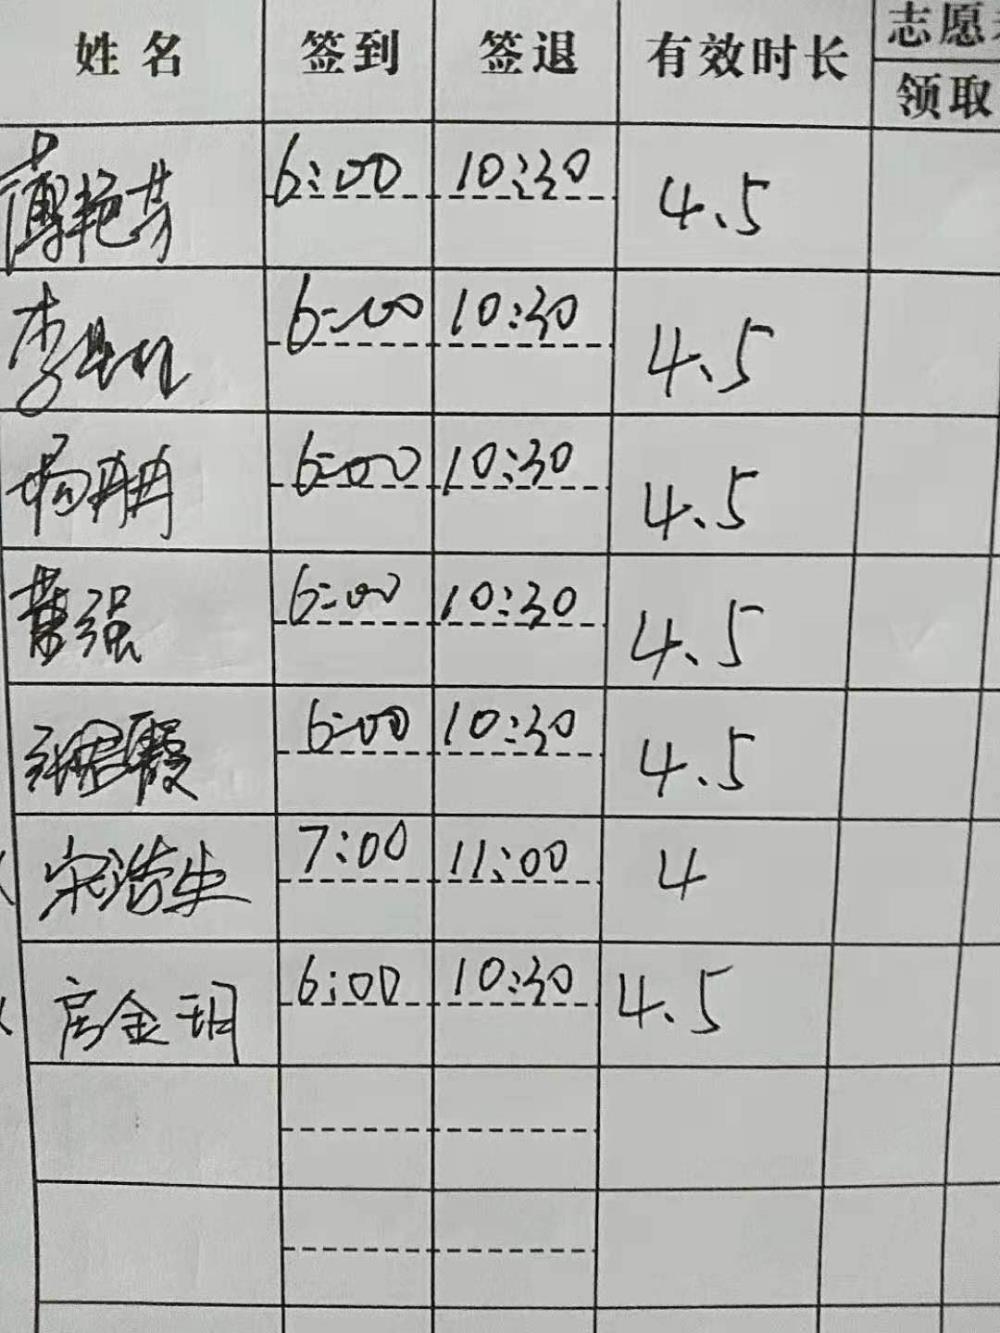 姓名 签到 签退 有效时长 志愿
领取
薄艳芳 6:00 10:30 4.5
李 6:00 10:30 4.5
杨冉冉 6:00 10:30 4.5
黄强 6:00 10:30 4.5
霞 6:00 10:30 4.5
宋浩生 7:00 11:00 4
房金玥 6:00 10:30 4.5